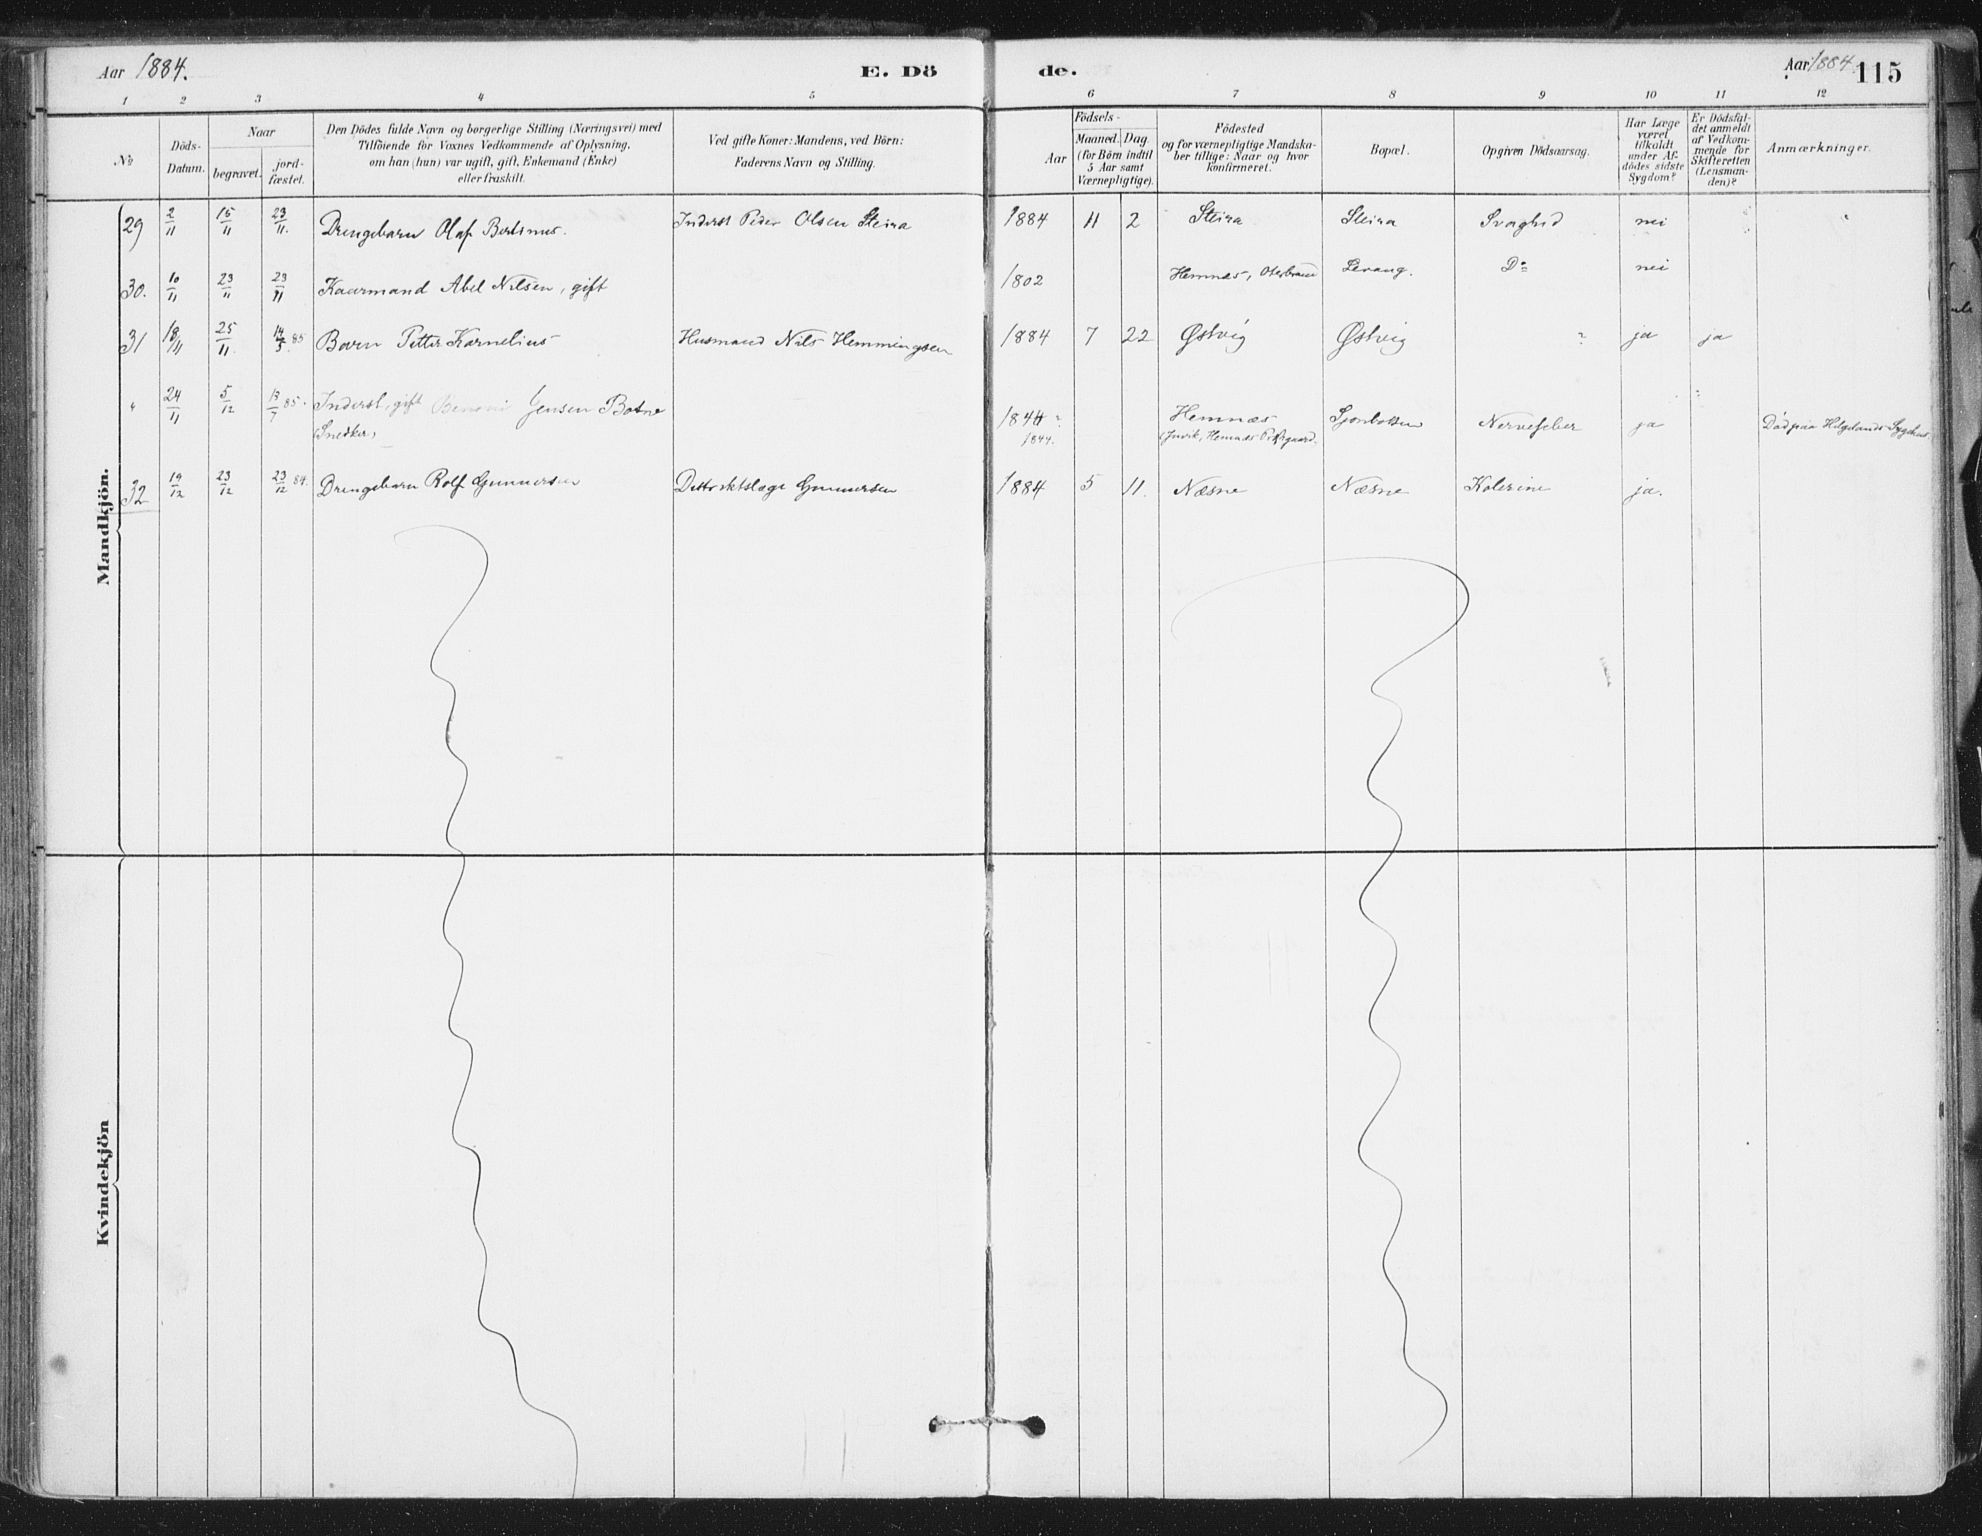 Aar 1884. E. Dö de. Aar 1884. 115
1 2 3 4 5 6 7 8 9 10 11 12
No
Döds-Datum.
Naar
begravet.
jord-fæstet.
Den Dödes fulde Navn og borgerlige Stilling (Næringsvei) med
Tilföiende for Voxnes Vedkommende af Oplysning,
om han (hun) var ugift, gift, Enkemand (Enke)
eller fraskilt.
Ved gifte Koner: Mandens, ved Börn:
Faderens Navn og Stilling.
Födsels-
Aar
Maaned. Dag
(for Börn indtil
5 Aar samt
Værnepligtige).
Födested
og for værnepligtige Mandska-
ber tillige: Naar og hvor
konfirmeret.
Bopæl.
Opgiven Dödsaarsag.
Har Læge
været
tilkaldt
under Af-
dödes sidste
Sygdom?
Er Dödsfal-
det anmeldt
af Vedkom-
mende for
Skifteretten
(Lensman-
den)?
Anmærkninger.
Mandkjön.
29 2/11 15/11 23/11. Drengebarn Olaf Bertinus. Inderst Peder Olsen Steira 1884 11 2 Steira Steira Svaghed nei
30. 10/11 23/11 23/11 Kaarmand Abel Nilsen, gift 1802 Hemnæs, Levang. Do nei
31 18/11 25/11. 14/5. 85 Barn Petter Kornelius Husmand Nils Hemmingsen 1884 7 22 Østvig Østvig ? ja ja
" 24/11 5/12 13/7 85. Inderst, gift Benoni Jensen Botne 1844 ? Hemnæs Sjonbotten Nervefeber ja " Död paa Helgelands Sygehus.
(Snedker) 1844. Hemnæs
32 19/12 23/12 23/12 84. Drengebarn Rolf Gunnersen Distriktslæge Gunnersen 1884 5 11. Næsne Næsne Kolerine ja.
Kvindekjön